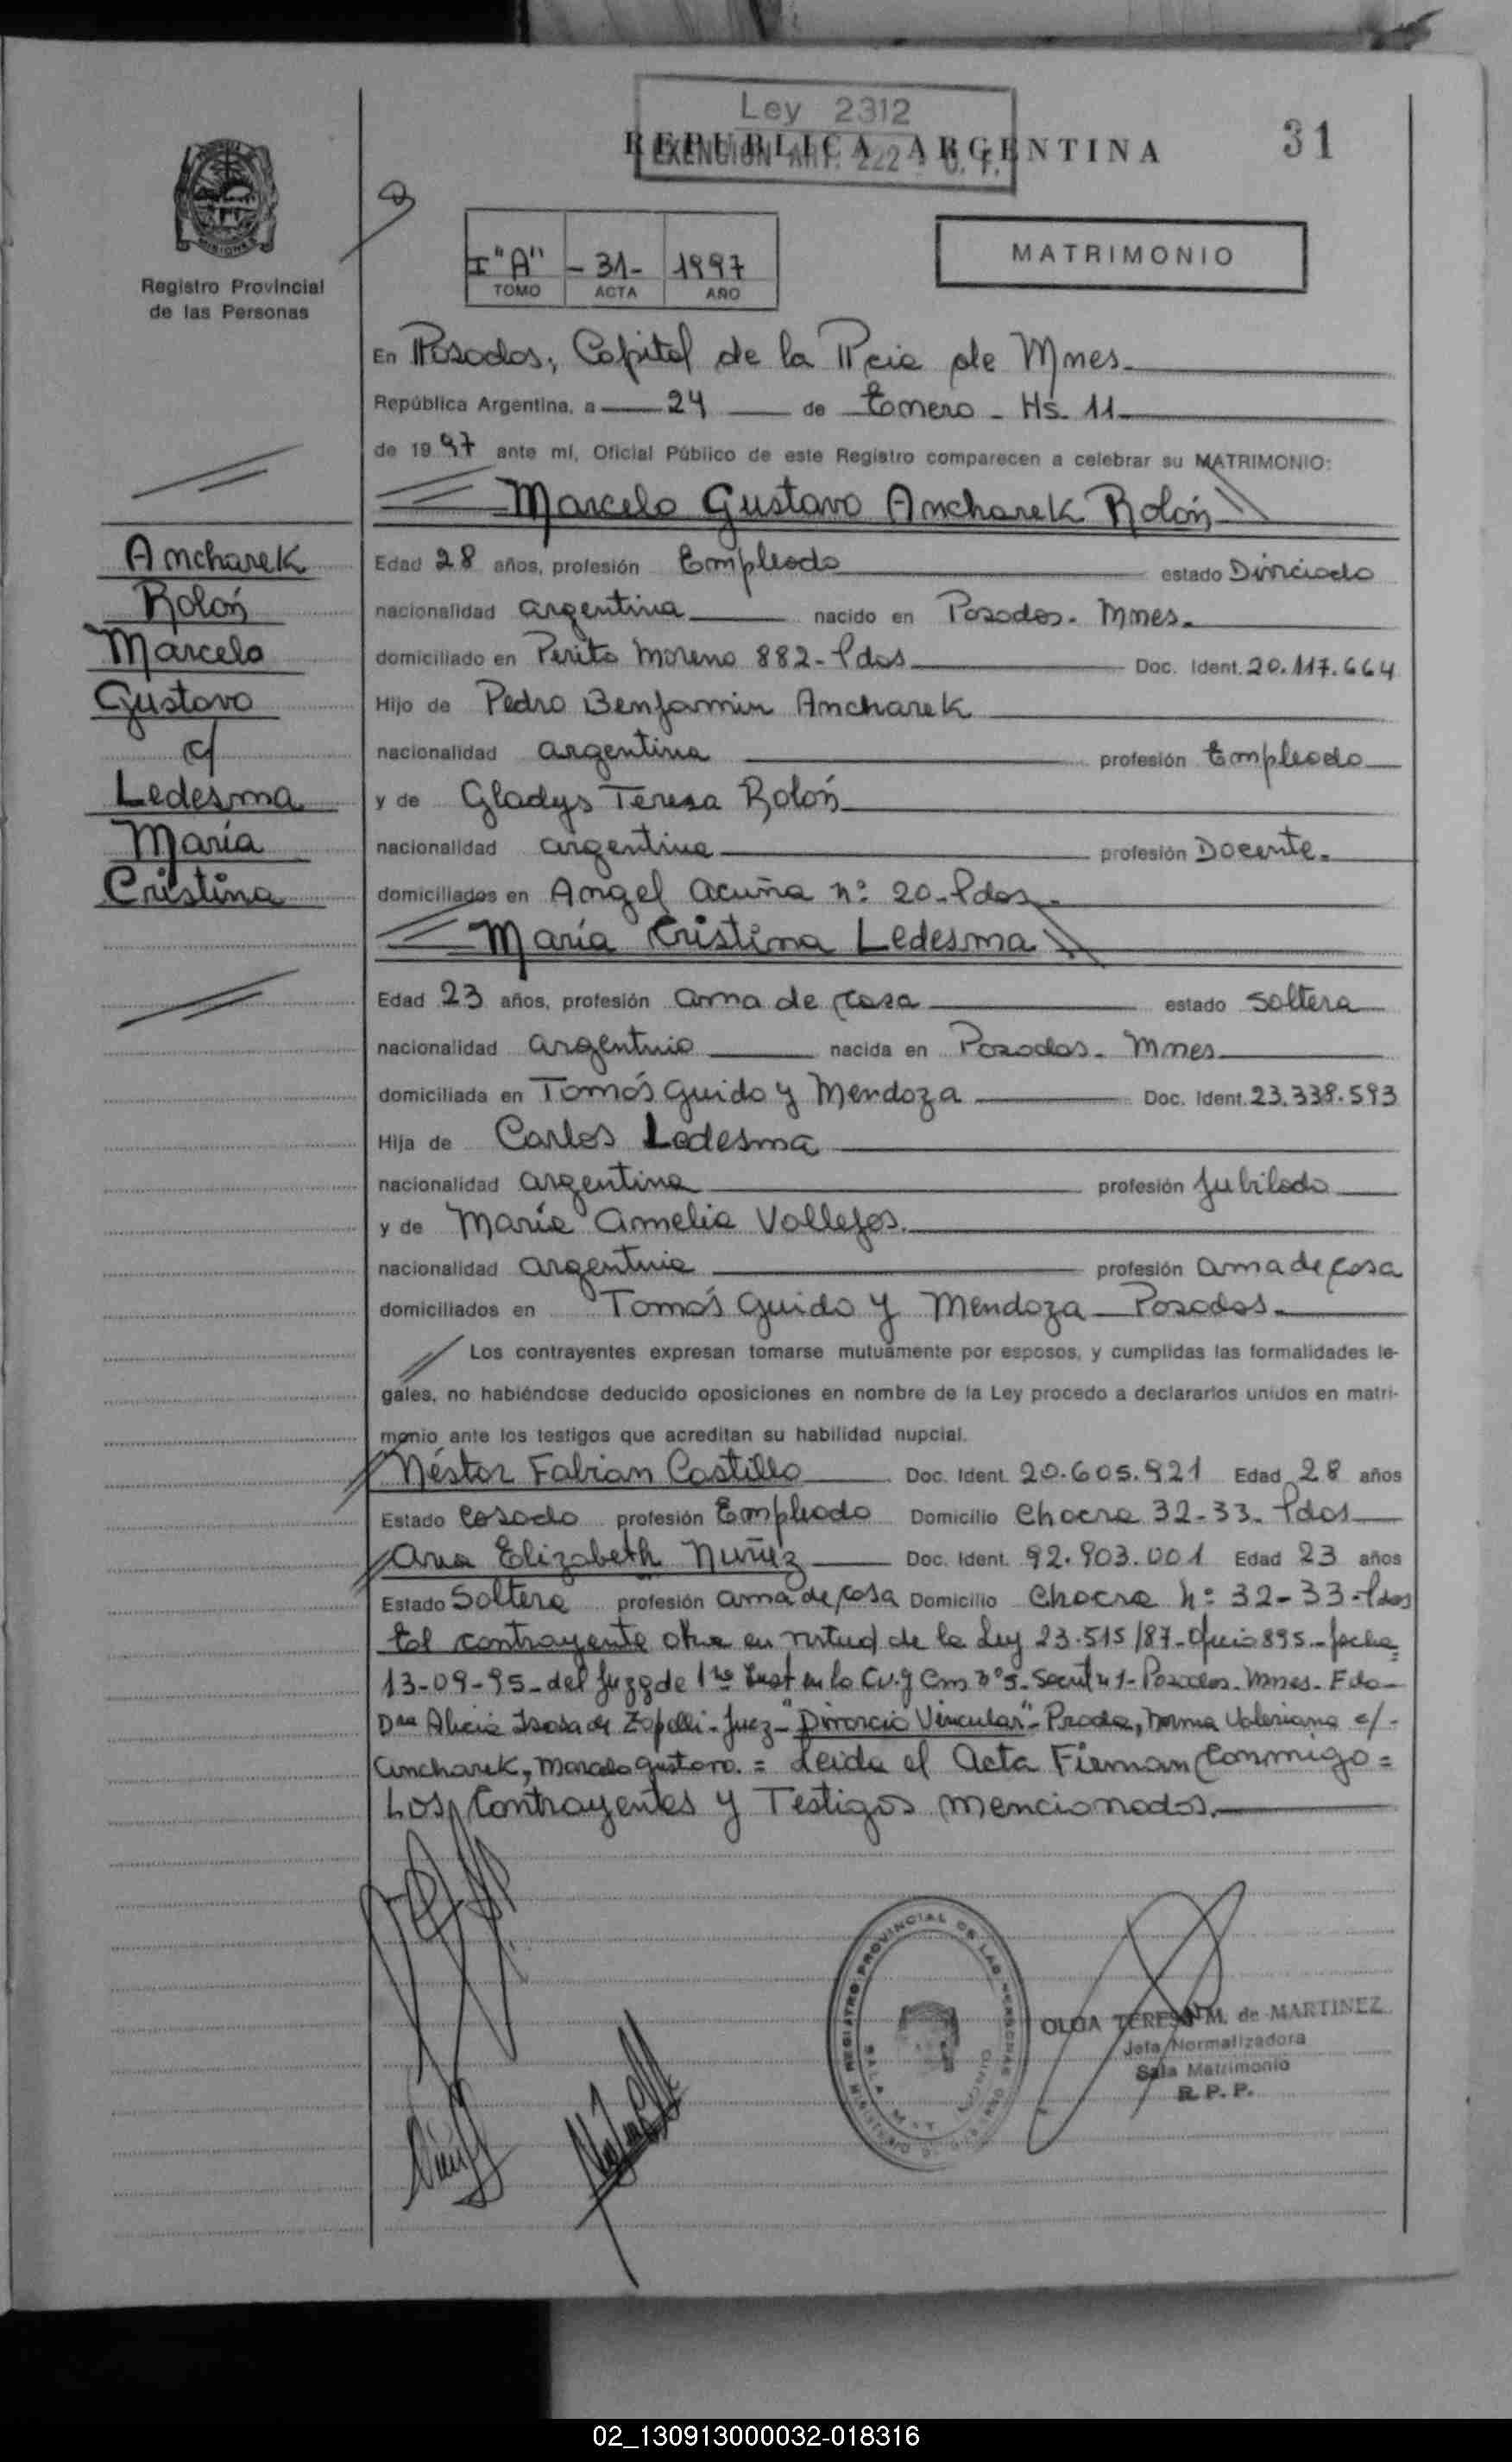 Ley 2312
REPUBLICA ARGENTINA
EXENCION ART. 222 C. F.
31
MISIONES
Registro Provincial
de las Personas
I "A" - 31- 1997
TOMO ACTA AÑO
MATRIMONIO
En Posadas, Capital de la Pcia de Mnes.
República Argentina, a 24 de Enero - Hs. 11
de 1997 ante mí, Oficial Público de este Registro comparecen a celebrar su MATRIMONIO:
Marcelo Gustavo Ancharek Rolón
Ancharek
Rolón
Marcelo
Gustavo
c/
Ledesma
María
Cristina
Edad 28 años, profesión Empleado estado Divorciado
nacionalidad argentina nacido en Posadas. Mnes.
domiciliado en Perito Moreno 882- Pdas Doc. Ident. 20.117.664
Hijo de Pedro Benjamin Ancharek
nacionalidad argentina profesión Empleado
y de Gladys Teresa Rolón
nacionalidad argentina profesión Docente.
domiciliados en Angel Acuña n: 20-Pdas.
María Cristina Ledesma
Edad 23 años, profesión ama de casa estado soltera
nacionalidad argentina nacida en Posadas. Mnes
domiciliada en Tomás Guido y Mendoza Doc. Ident. 23.338.593
Hija de Carlos Ledesma
nacionalidad argentina profesión Jubilado
y de María Amelia Vallejos.
nacionalidad argentina profesión ama de casa
domiciliados en Tomás Guido y Mendoza Posadas.
Los contrayentes expresan tomarse mutuamente por esposos, y cumplidas las formalidades le-
gales, no habiéndose deducido oposiciones en nombre de la Ley procedo a declararlos unidos en matri-
monio ante los testigos que acreditan su habilidad nupcial.
Néstor Fabian Castillo Doc. Ident. 20.605.921 Edad 28 años
Estado casado profesión Empleado Domicilio Chacra 32-33. Pdas
Ana Elizabeth Nuñez Doc. Ident. 92.903.001 Edad 23 años
Estado Soltera profesión ama de casa Domicilio Chacra n: 32-33-Pdas
El contrayente en virtud de la Ley 23.515/87- Oficio 895-fecha
13-09-95-del Juzg de 1ra Inst en lo Civ. y Com nº 5- nº 1-Posadas. Mnes- Fdo-
Dra Alicia Sosa de Zapelli-Juez-"Divorcio Vincular"- Prada, Norma Valeriana c/-
Ancharek, Marcelo Gustavo. = Leida el Acta Firman Conmigo =
Los Contrayentes y Testigos mencionados.
REGISTRO PROVINCIAL DE LAS PERSONAS
OLGA TERESA M. de MARTINEZ
Jefa Normalizadora
Sala Matrimonio
R. P. P.
02_130913000032-018316